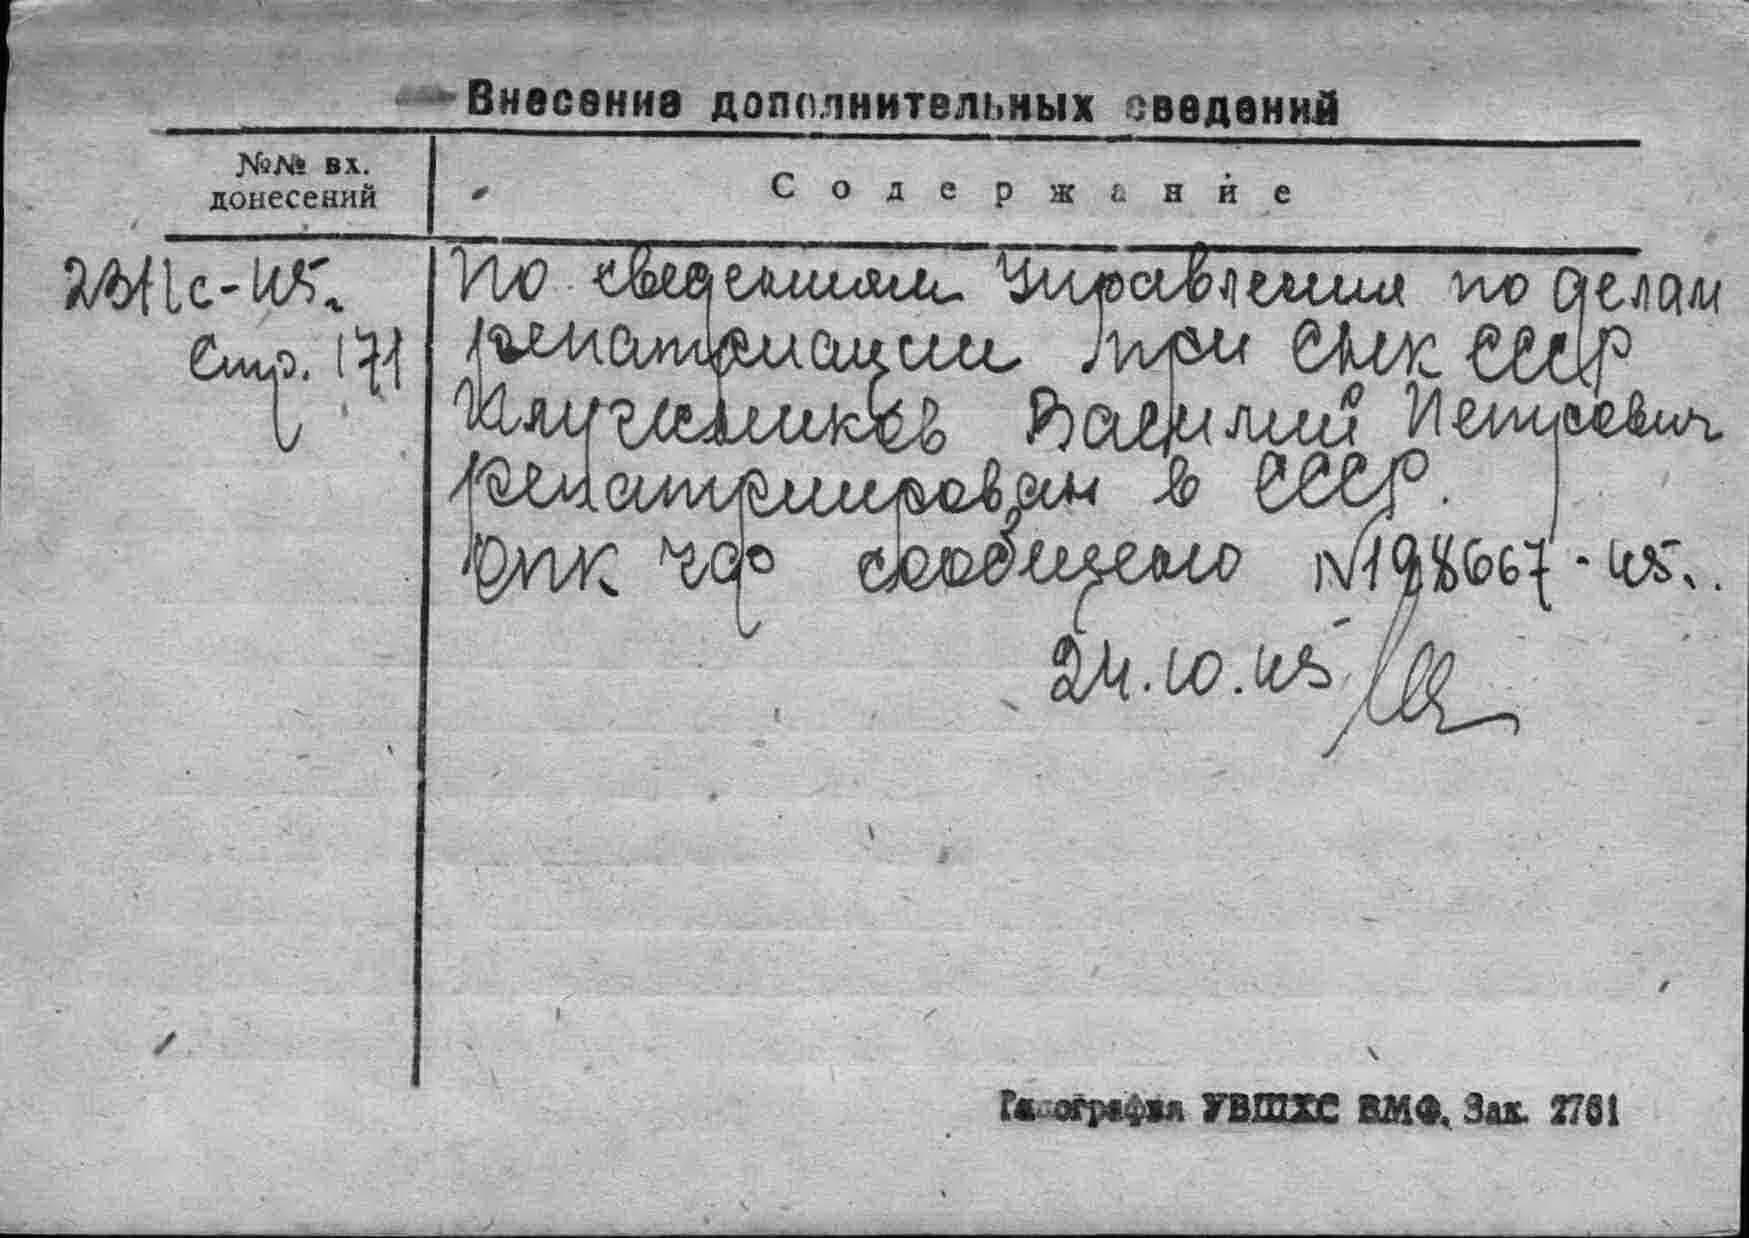 Внесение дополнительных сведений
№№ вх.
донесений
Содержание
2311с-45.
Стр. 171
По сведениям Управления по делам
репатриации при СНК СССР
Василий Петрович
репатриирован в СССР.
ОПК ЧФ сообщено №198667-45.
24.10.45
Типография УВШХС ВМФ. Зак. 2761